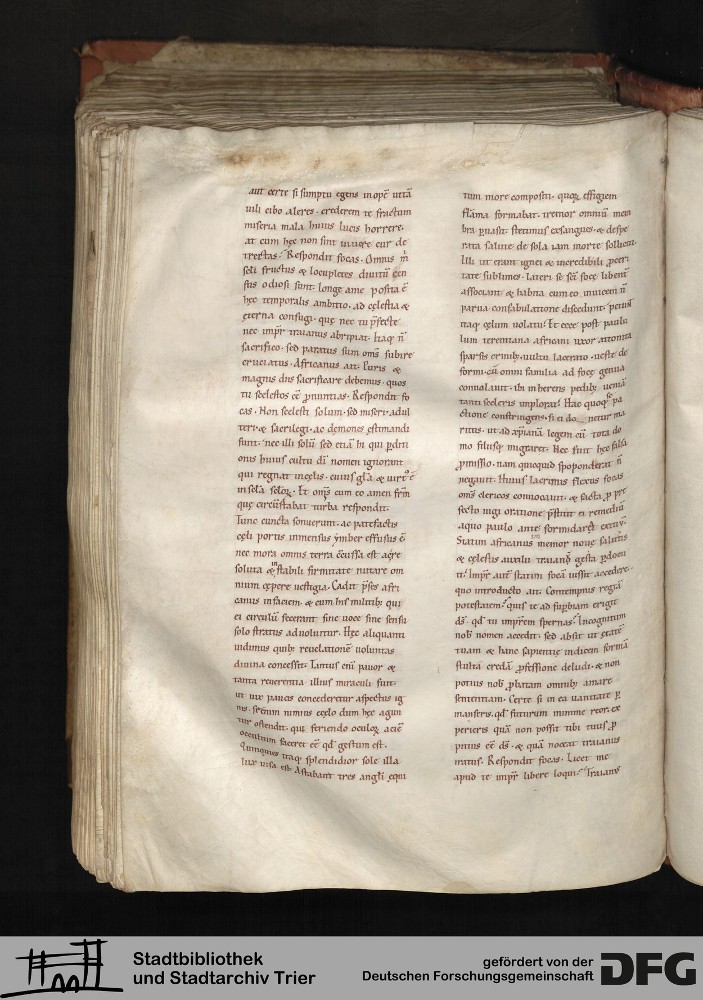 aut certe si sumptu egens inopē uitā
uili cibo aleres. crederem te fractum
miseria mala huius lucis horrere.
at cum hęc non sint uiuere cur de
Respondit focas. Omnis
seti fructus & locupletes diuitū
sus odiosi sunt. longe ame posita ē
hęc temporalis ambitio. ad cęlestia &
ęterna confugi. quę nec tu pfecte
nec impr traianus abripiat. Itaq; ñ
sacrifico. sed paratus sum oms subire
cruciatus. Africanus ait. Puris &
magnis diis sacrificare debemus. quos
tu scelestos eē pnuntias. Respondit fo
cas. Non scelesti solum. sed miseri. adul
teri. & sacrilegi. ac demones estimandi
sunt. nec illi solū sed etiā hi qui pditi
onis huius cultu dī nomen ignorant
qui regnat incęlis. cuius glā & uirt' ē
insclā sclor. Et oms cum eo amen
quę circūstabat turba respondit.
Tunc cuncta sonuerunt. ac patefactis
cęli portis immensus ymber effusus ē
nec mora omnis terra cussa est
soluta & instabili firmitate nutare om
nium cepere uestigia. Cadit pses afri
canus infaciem. & cum his militib; qui
ei circulū fecerant sine uoce sine sensu
solo stratus aduoluitur. Hęc aliquanti
uidimus quib; reuelationē uoluntas
diuina concessit. Tantus eni pauor &
tanta reuerentia illius miraculi fuit.
ut uix paucis concederetur aspectus ig
nis. serenum nimius cęlo dum hęc agun
tur ostendit. qui feriendo oculor aciē
occultum faceret eē qd gestum est.
Quinimus itaq; splendidior sole illa
lux uisa est. Astabant tres angli equi
tum more compositi. quor effigiem
flāma formabat. tremor omniū mem
bra puasit. stetimus exsangues. & despe
rata salute de sola iam morte solliciti.
Illi ut erant ignei & incredibili pceri
tate sublimes. lateri se scī focę libent
associant. & habita cum eo inuicem ñ
parua confabulatione discedunt. petunt
itaq; cęlum uolatu. Et ecce post paulu
lum terentiana africani uxor attonita
sparsis crinib; uultu lacerato. ueste de
formi. cū omni familia ad focę genua
conuolauit. ibi inherens pedib; ueniā
tanti sceleris implorat. Hac quoq; pa
ctione constringens. si ei do netur ma
ritus. ut ad xpianā legem cū tota do
mo filiisq; migraret. Nec fuit hęc falsa
pmissio. nam quicquid spoponderat ñ
negauit. Huius lacrimis flexus focas
oms clericos conuocauit. & facta p pre
fecto iugi oratione pstitit ei remediū
aquo paulo ante formidaret exitiū.
Statim africanus inmemor nouę salutis
& cęlestis auxilii traiano gesta pdocu
it. Impr aut statim focā iussit accedere.
quo introducto ait. Contempnis regiā
potestatem? quis te ad supbiam erigit
ds. qd tu imprem spernas? Incognitum
nob nomen accedit. sed absit ut ętatē
tuam & hanc sapientię indicem formā
stulta credā pfessione deludi. & non
potius nob pbatam omnib; amare
sententiam. Certe si in ea uanitate p
manseris. qd futurum minime reor. ex
perieris quā non possit tibi tuus p
pitius eē ds. & quā noceat traianus
iratus. Respondit focas. Licet me
apud te impr libere loqui? Traianus
Stadtbibliothek
und Stadtarchiv Trier
gefördert von der
Deutschen Forschungsgemeinschaft
DFG